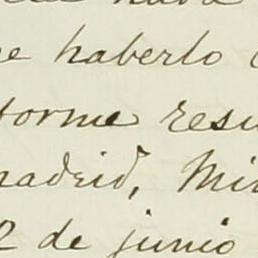 haberlo
torme resu
madrid, Mi
2 de junio